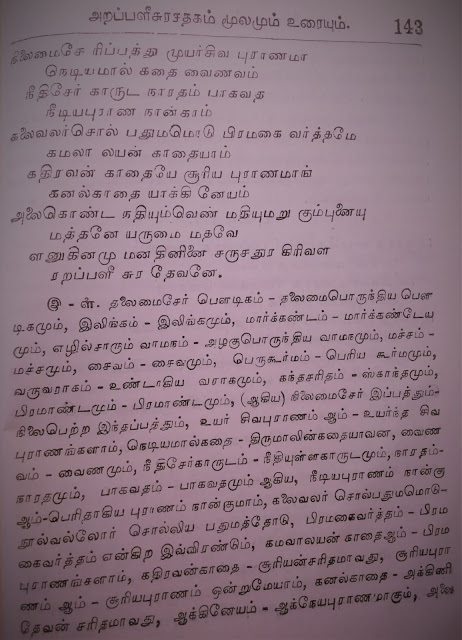 அறப்பளீசுரசதகம் மூலமும் உரையும். 143
நிலைமைசே ரிப்பத்து முயர்சிவ புராணமா
நெடியமால் கதை வைணவம்
நீதிசேர் காருட நாரதம் பாகவத
நீடியபுராண நான்காம்
கலைவலர்சொல் பதுமமொடு பிரமகை வர்த்தமே
கமலா லயன் காதையாம்
கதிரவன் காதையே சூரிய புராணமாங்
கனல்காதை யாக்கி னேயம்
அலைகொண்ட நதியும்வெண் மதியுமறு கும்புனையு
மத்தனே யருமை மதவே
ளனுதினமு மனதினினை சருசதுர கிரிவள
ரறப்பளீ சுர தேவனே.
இ - ள். தலைமைசேர் பௌடிகம் - தலைமைபொருந்திய பௌ
டிகமும், இலிங்கம் - இலிங்கமும், மார்க்கண்டம் - மார்க்கண்டேய
மும், எழில்சாரும் வாமநம் - அழகுபொருந்திய வாமநமும், மச்சம் -
மச்சமும், சைவம் - சைவமும், பெருகூர்மம் - பெரிய கூர்மமும்,
வருவராகம் - உண்டாகிய வராகமும், கந்தசரிதம் - ஸ்காந்தமும்,
பிரமாண்டமும் - பிரமாண்டமும், (ஆகிய) நிலைமைசேர் இப்பத்தும் -
நிலைபெற்ற இந்தப்பத்தும், உயர் சிவபுராணம் ஆம் - உயர்ந்த சிவ
புராணங்களாம், நெடியமால்கதை - திருமாலின்கதையாவன, வைண
வம் - வைணமும், நீதிசேர்காருடம் - நீதியுள்ளகாருடமும், நாரதம் -
நாரதமும், பாகவதம் - பாகவதமும் ஆகிய, நீடியபுராணம் நான்கு
ஆம் - பெரிதாகிய புராணம் நான்குமாம், கலைவலர் சொல்பதுமமொடு -
நூல்வல்லோர் சொல்லிய பதுமத்தோடு, பிரமகைவர்த்தம் - பிரம
கைவர்த்தம் என்கிற இவ்விரண்டும், கமலாலயன் காதைஆம் - பிரம
புராணங்களாம், கதிரவன்காதை - சூரியன்சரிதமாவது, சூரியபுரா
ணம் ஆம் - சூரியபுராணம் ஒன்றுமேயாம், கனல்காதை - அக்கினி
தேவன் சரிதமாவது, ஆக்கினேயம் - ஆக்நேயபுராணமாகும், அலை